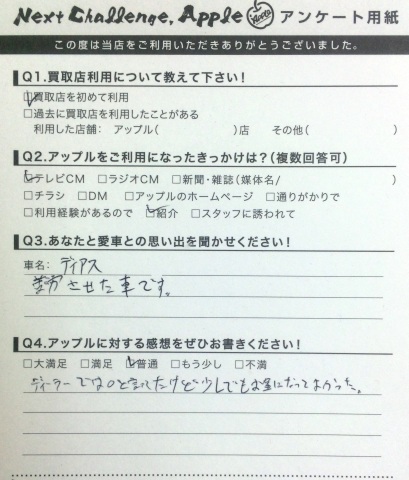 Next Challenge, Apple Apple アンケート用紙
この度は当店をご利用いただきありがとうございました。
Q1.買取店利用について教えて下さい!
☑買取店を初めて利用
□過去に買取店を利用したことがある
利用した店舗: アップル( )店 その他( )
Q2.アップルをご利用になったきっかけは?(複数回答可)
☑テレビCM □ラジオCM □新聞・雑誌(媒体名/ )
□チラシ □DM □アップルのホームページ □通りがかりで
□利用経験があるので ☑紹介 □スタッフに誘われて
Q3.あなたと愛車との思い出を聞かせてください!
車名: ディアス
させた車です。
Q4.アップルに対する感想をぜひお書きください!
□大満足 □満足 ☑普通 □もう少し □不満
ディーラーでは0と言ってたけど少しでもお金になってよかった。